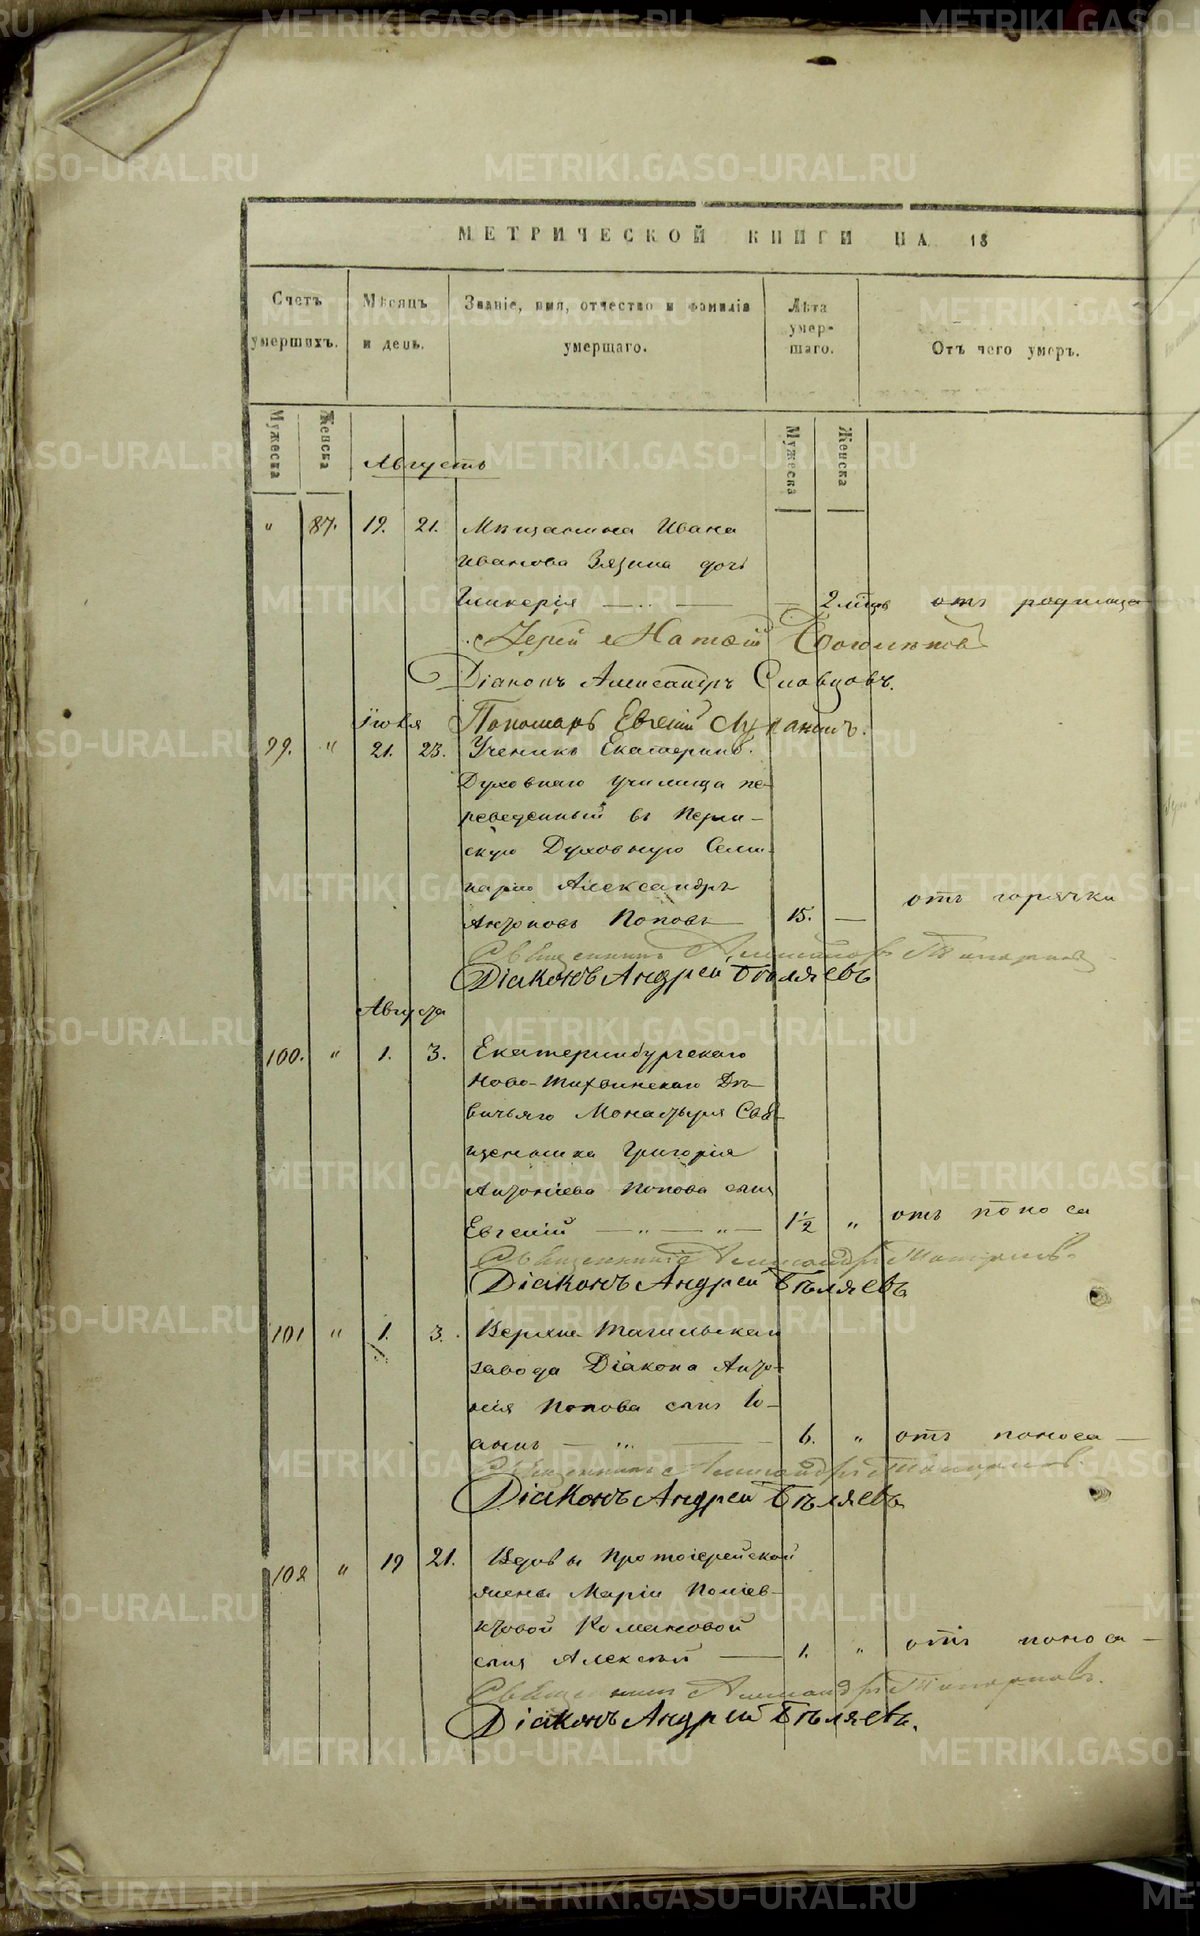 МЕТРИЧЕСКОЙ КНИГИ НА 18
Счетъ умершихъ.
Мѣсяцъ и день.
Званіе, имя, отчество и фамилія умершаго.
Лѣта умершаго.
Отъ чего умеръ.
Мужеска
Женска
Мужеска
Женска
Августъ
" 87. 19. 21. Мѣщанина Ивана
Иванова Зязина дочь
Гликерія — 2 мѣц. отъ родимца
Іерей
Діаконъ Александръ Словцовъ.
Іюля Пономарь Евгеній
99. " 21. 23. Ученикъ Екатеринб.
Духовнаго училища пе-
реведенный въ Перм-
скую Духовную Семи-
нарію Александръ
Антоновъ Поповъ 15. — отъ горячки
Священникъ
Діаконъ Андрей Бѣляевъ
Августа
100. " 1. 3. Екатеринбургскаго
Ново-Тихвинскаго Дѣ-
вичьяго Монастыря Свя-
щенника Григорія
Антоніева Попова сынъ
Евгеній — " — " — 1½ " отъ поноса
Священникъ
Діаконъ Андрей Бѣляевъ
101 " 1. 3. Верхне-Тагильскаго
завода Діакона Анто-
нія Попова сынъ Іо-
аннъ — " — 6. " отъ поноса —
Священникъ
Діаконъ Андрей Бѣляевъ
102 " 19 21. Вдовы Протоіерейской
жены Маріи Поліев-
ктовой Романовой
сынъ Алексѣй — 1. " отъ поноса —
Священникъ
Діаконъ Андрей Бѣляевъ.
METRIKI.GASO-URAL.RU